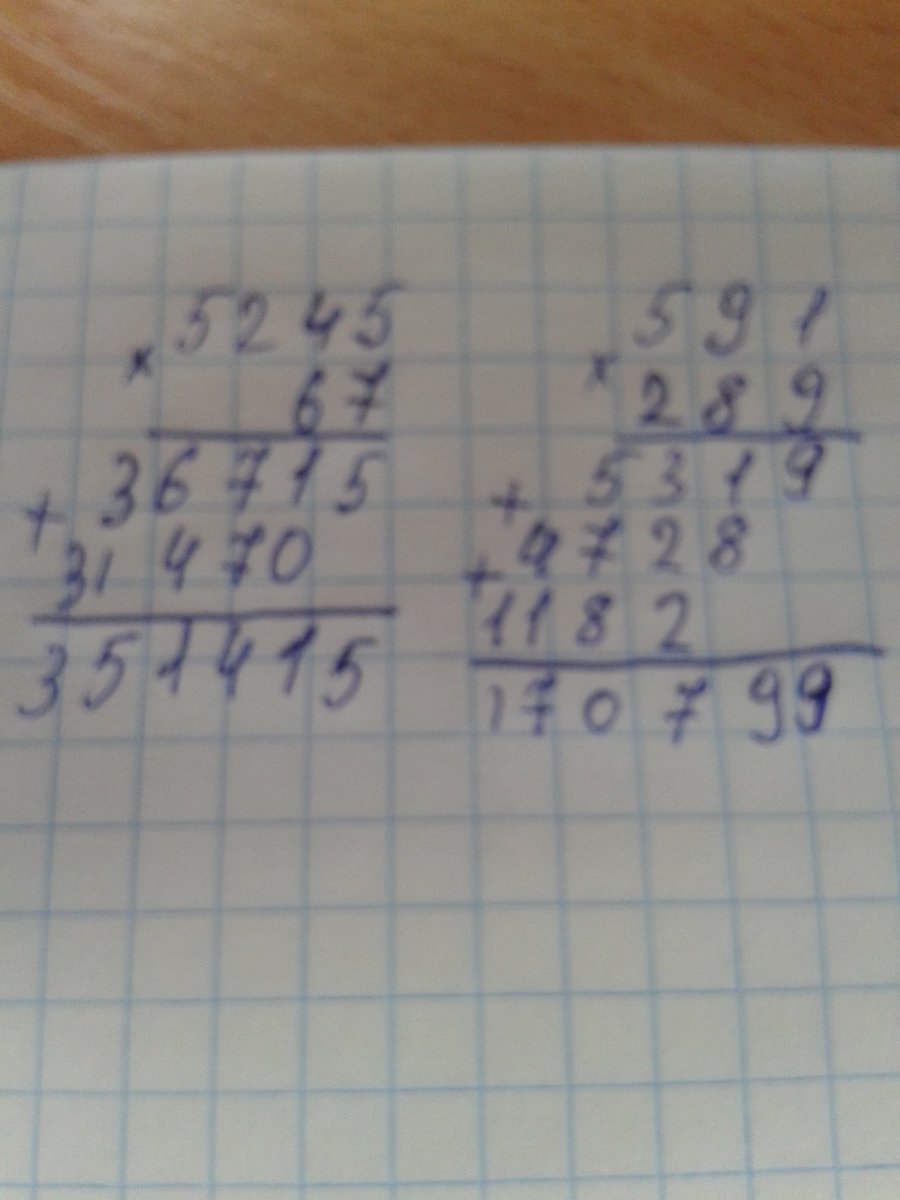 5245
×
67
36715
+
31470
351415
591
×
289
5319
+
4728
+
1182
170799